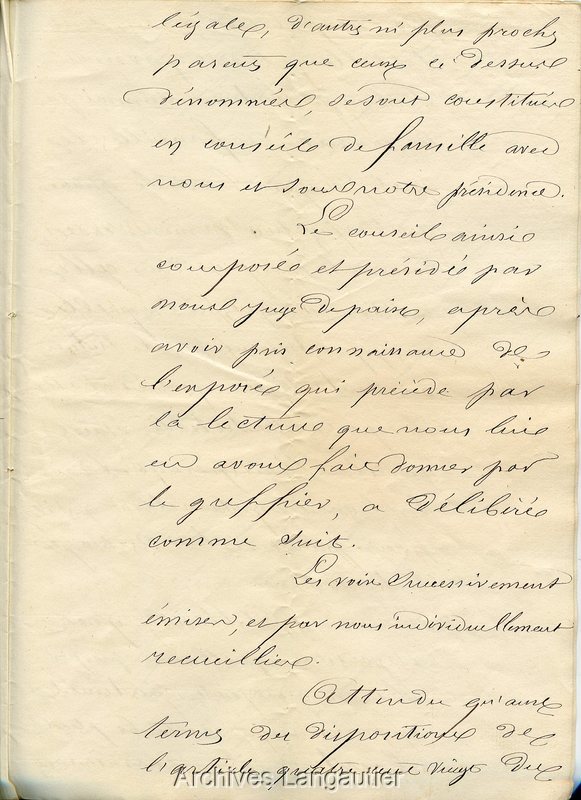 légale, d'autres ni plus proches
parents que ceux ci dessus
dénommés, se sont constitués
en conseil de famille avec
nous et sous notre présidence.
Le conseil ainsi
composé et présidé par
nous juge de paix, après
avoir pris connaissance de
l'exposé qui précède par
la lecture que nous lui
en avons fait donner par
le greffier, a délibéré
comme suit.
Les voix successivement
émises, et par nous individuellement
recueillies.
Attendu qu'aux
termes des dispositions de
l'article quatre cent vingt du
Archives Langautier